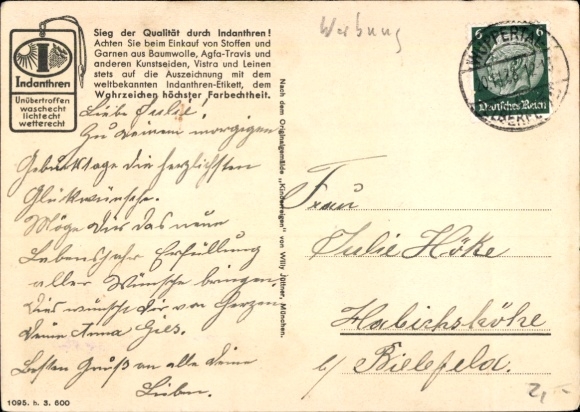 Sieg der Qualität durch Indanthren!
Achten Sie beim Einkauf von Stoffen und
Garnen aus Baumwolle, Agfa-Travis und
anderen Kunstseiden, Vistra und Leinen
stets auf die Auszeichnung mit dem
weltbekannten Indanthren-Etikett, dem
Wahrzeichen höchster Farbechtheit.
I
Indanthren
Unübertroffen
waschecht
lichtecht
wetterecht
Liebe Julie!
Zu Deinem morgigen
Geburtstage die herzlichsten
Glückwünsche.
Möge Dir das neue
Lebensjahr Erfüllung
aller Wünsche bringen.
Dies wünscht Dir von Herzen
Deine Anna Gies.
Besten Gruß an alle Deine
Lieben.
1095. h. 3. 600
Nach dem Originalgemälde „Kinderreigen" von Willy Jüttner, München.
Werbung
6 6
Deutsches Reich
WUPPERTAL
ELBERFELD
Frau
Julie Höke
Habichshöhe
b/ Bielefeld.
2,-